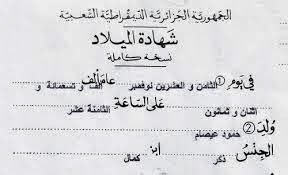 الجمهورية الجزائرية الديمقراطية الشعبية
شهادة الميلاد
نسخة كاملة
في يوم ① الثامن و العشرين نوفمبر عام ألف الف و تسعمائة و
اثنان و ثمانون على الساعة الثامنة عشر
ولد ② حمود عيصام
الجنس ذكر ابن كمال